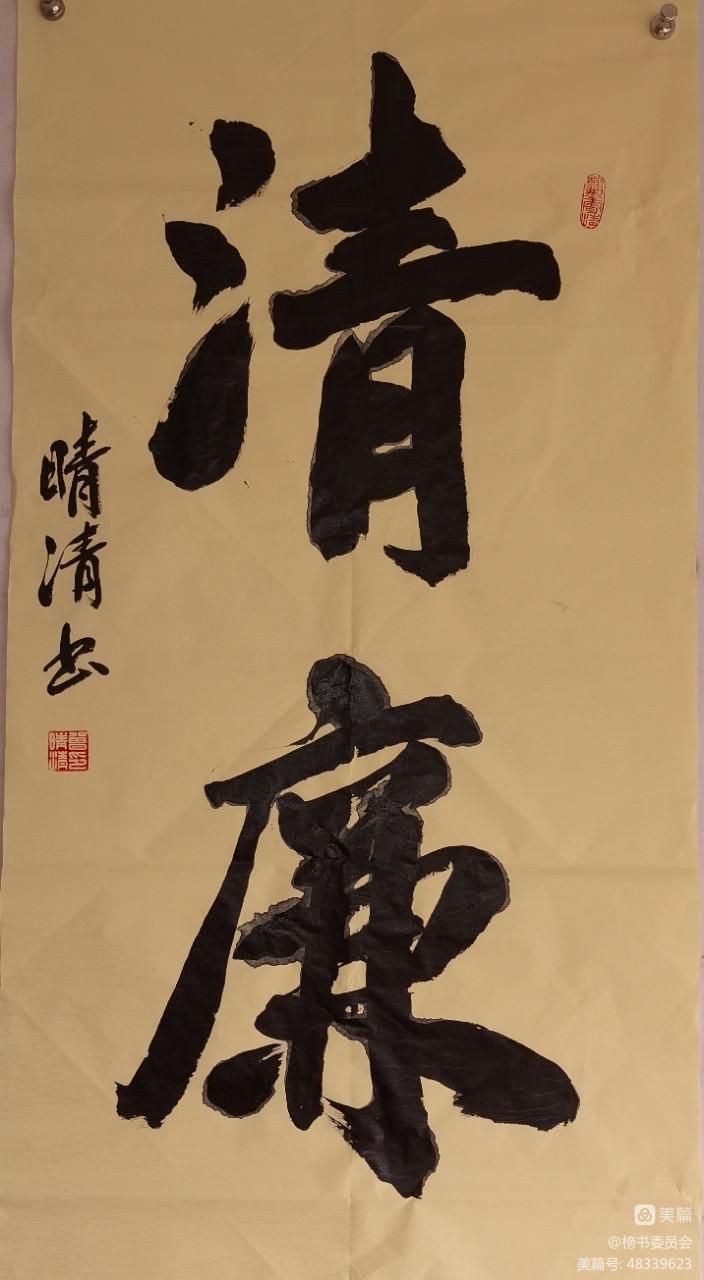 清廉
晴清书
美篇
@榜书委员会
美篇号: 48339623